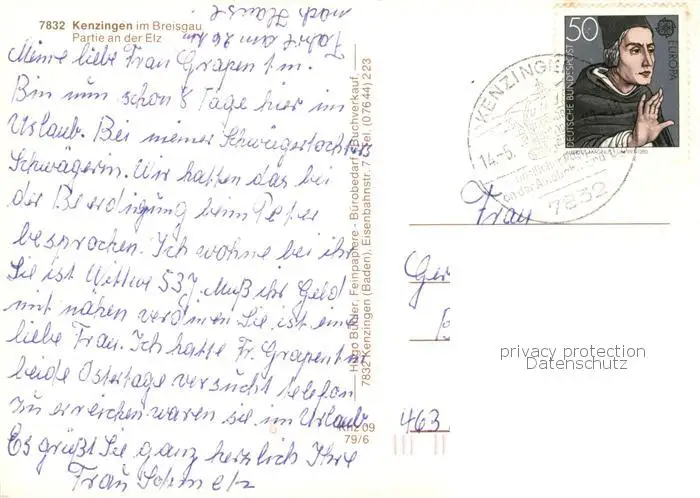 7832 Kenzingen im Breisgau
Partie an der Elz
Fahre am 26
nach Hause
Meine liebe Frau Grapentin.
Bin nun schon 8 Tage hier im
Urlaub. Bei meiner Schwägers
Schwägerin. Wir hatten das bei
der Beerdigung beim Peter
besprochen. Ich wohne bei ihr
Sie ist Wittwe 53 J. Muß ihr Geld
mit nähen verdinen Sie ist eine
liebe Frau. Ich hatte Fr. Grapentin
beide Ostertage versucht telefon
zu erreichen waren sie im Urlaub
Es grüßt Sie ganz herzlich Ihre
Frau Schmelz
Hugo Buhler, Feinpapiere - Bürobedarf - Buchverkauf,
7832 Kenzingen (Baden), Eisenbahnstr. Tel. (07644) 223
Knz 09
79/6
50
DEUTSCHE BUNDESPOST
EUROPA
KENZINGEN
14.-5.
7832
Frau
Ger
463
privacy protection
Datenschutz